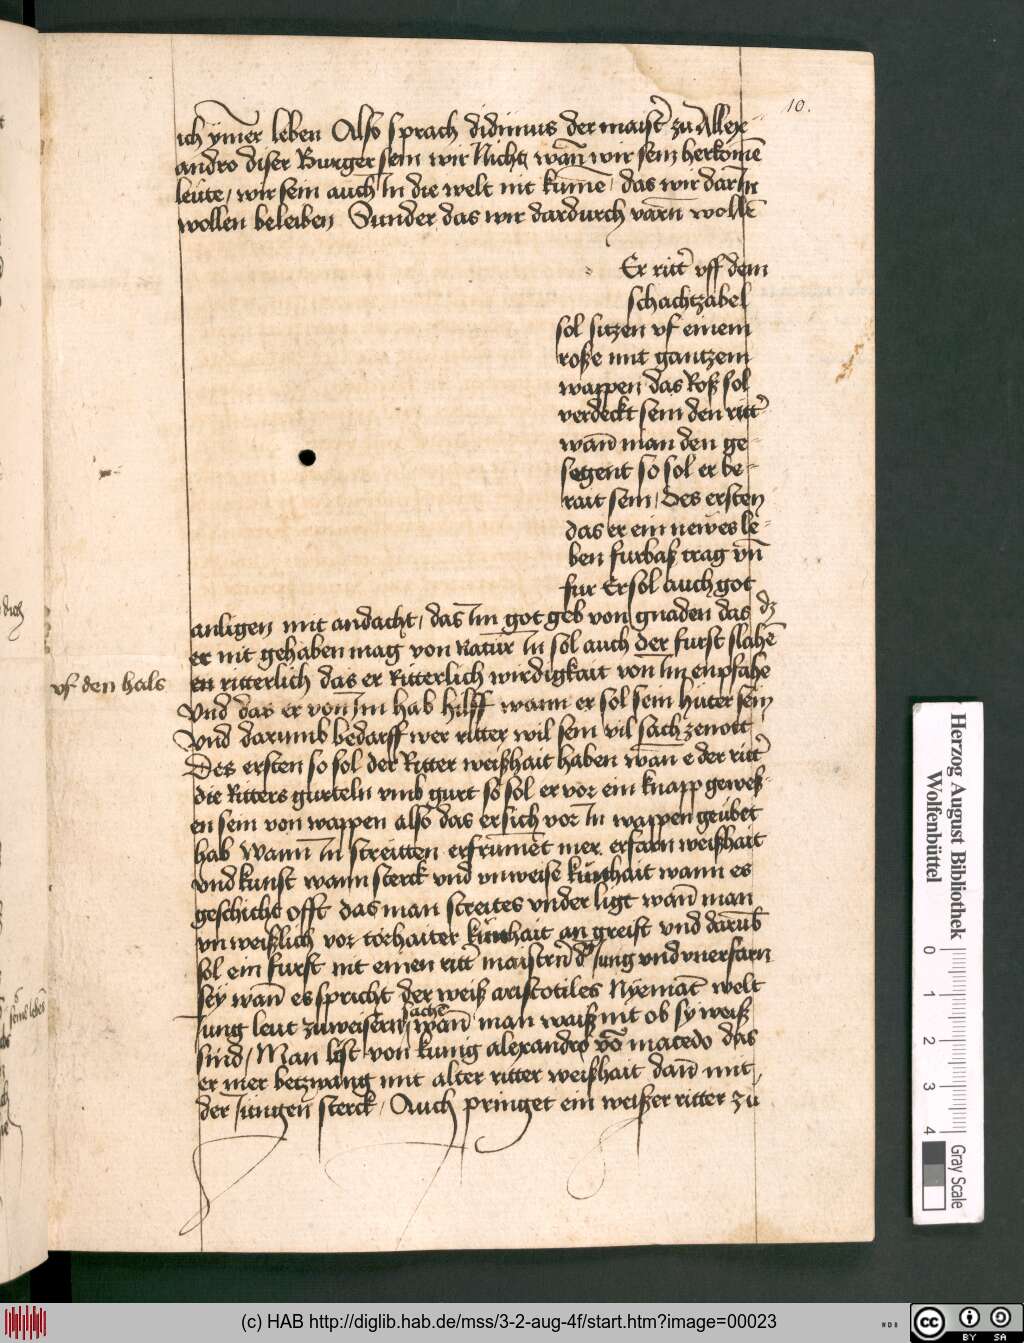 10.
ich ym̄er leben Also sprach didimus der maist̕ zu Allex
andro diser Burger sein wir Nicht wan̄ wir sein herkomē
leute / wir sein auch In die welt nit kumē / das wir dar In
wollen beleiben Sunder das wir dardurch varn̄ wollē
Er ritt̕ vff dem
schachtzabel
sol sitzen vf einem
roße mit gantzem
wappen das Roß sol
verdeckt sein den ritt̕
wan̄ man den ge-
segent so sol er be-
rait sein / Des ersten
das er ein newes le-
ben furbaß trag vn̄
fur Er sol auch got
anligen mit andacht / das Im got geb von gnaden das dz
er nit gehaben mag von Natur In sol auch der furst slahē
vf den hals
en ritterlich das er Ritterlich wirdigkait von Im enpfahe
Vnd das er von Im hab hilff wann er sol sein hüter sein
Vnd darumb bedarff wer ritter wil sein vil sach zenott
Des ersten so sol der Ritter weißhait haben wan̄ e der ritt̕
die Ritters gurteln vmb gurt so sol er vor ein knapp geweß-
en sein von wappen also das er sich vor In wappen geübet
hab Wann In streitten erfrumet mer erfarn weißhait
vnd kunst wann sterck vnd vnweise künhait wann es
geschicht offt das man streites vnder ligt wan̄ man
vn weißlich vor torhaiter künhait an greift vnd darūb
sol ein furst nit einen ritt̕ maistern̄ d̕ Jung vnd vnerfarn
sey wan̄ es spricht der weiß aristotiles Nyemāt welt
Jung leut zu weisern sachē wan̄ man waiß nit ob sy weiß
sind / Man list von kunig alexandro vō macedo das
er mer betzwang mit alter ritter weißhait dan̄ mit
der Jüngen sterck / Auch pringet ein weißer ritter zu
Herzog August Bibliothek
Wolfenbüttel
0 1 2 3 4
Gray Scale
(c) HAB http://diglib.hab.de/mss/3-2-aug-4f/start.htm?image=00023
cc BY SA